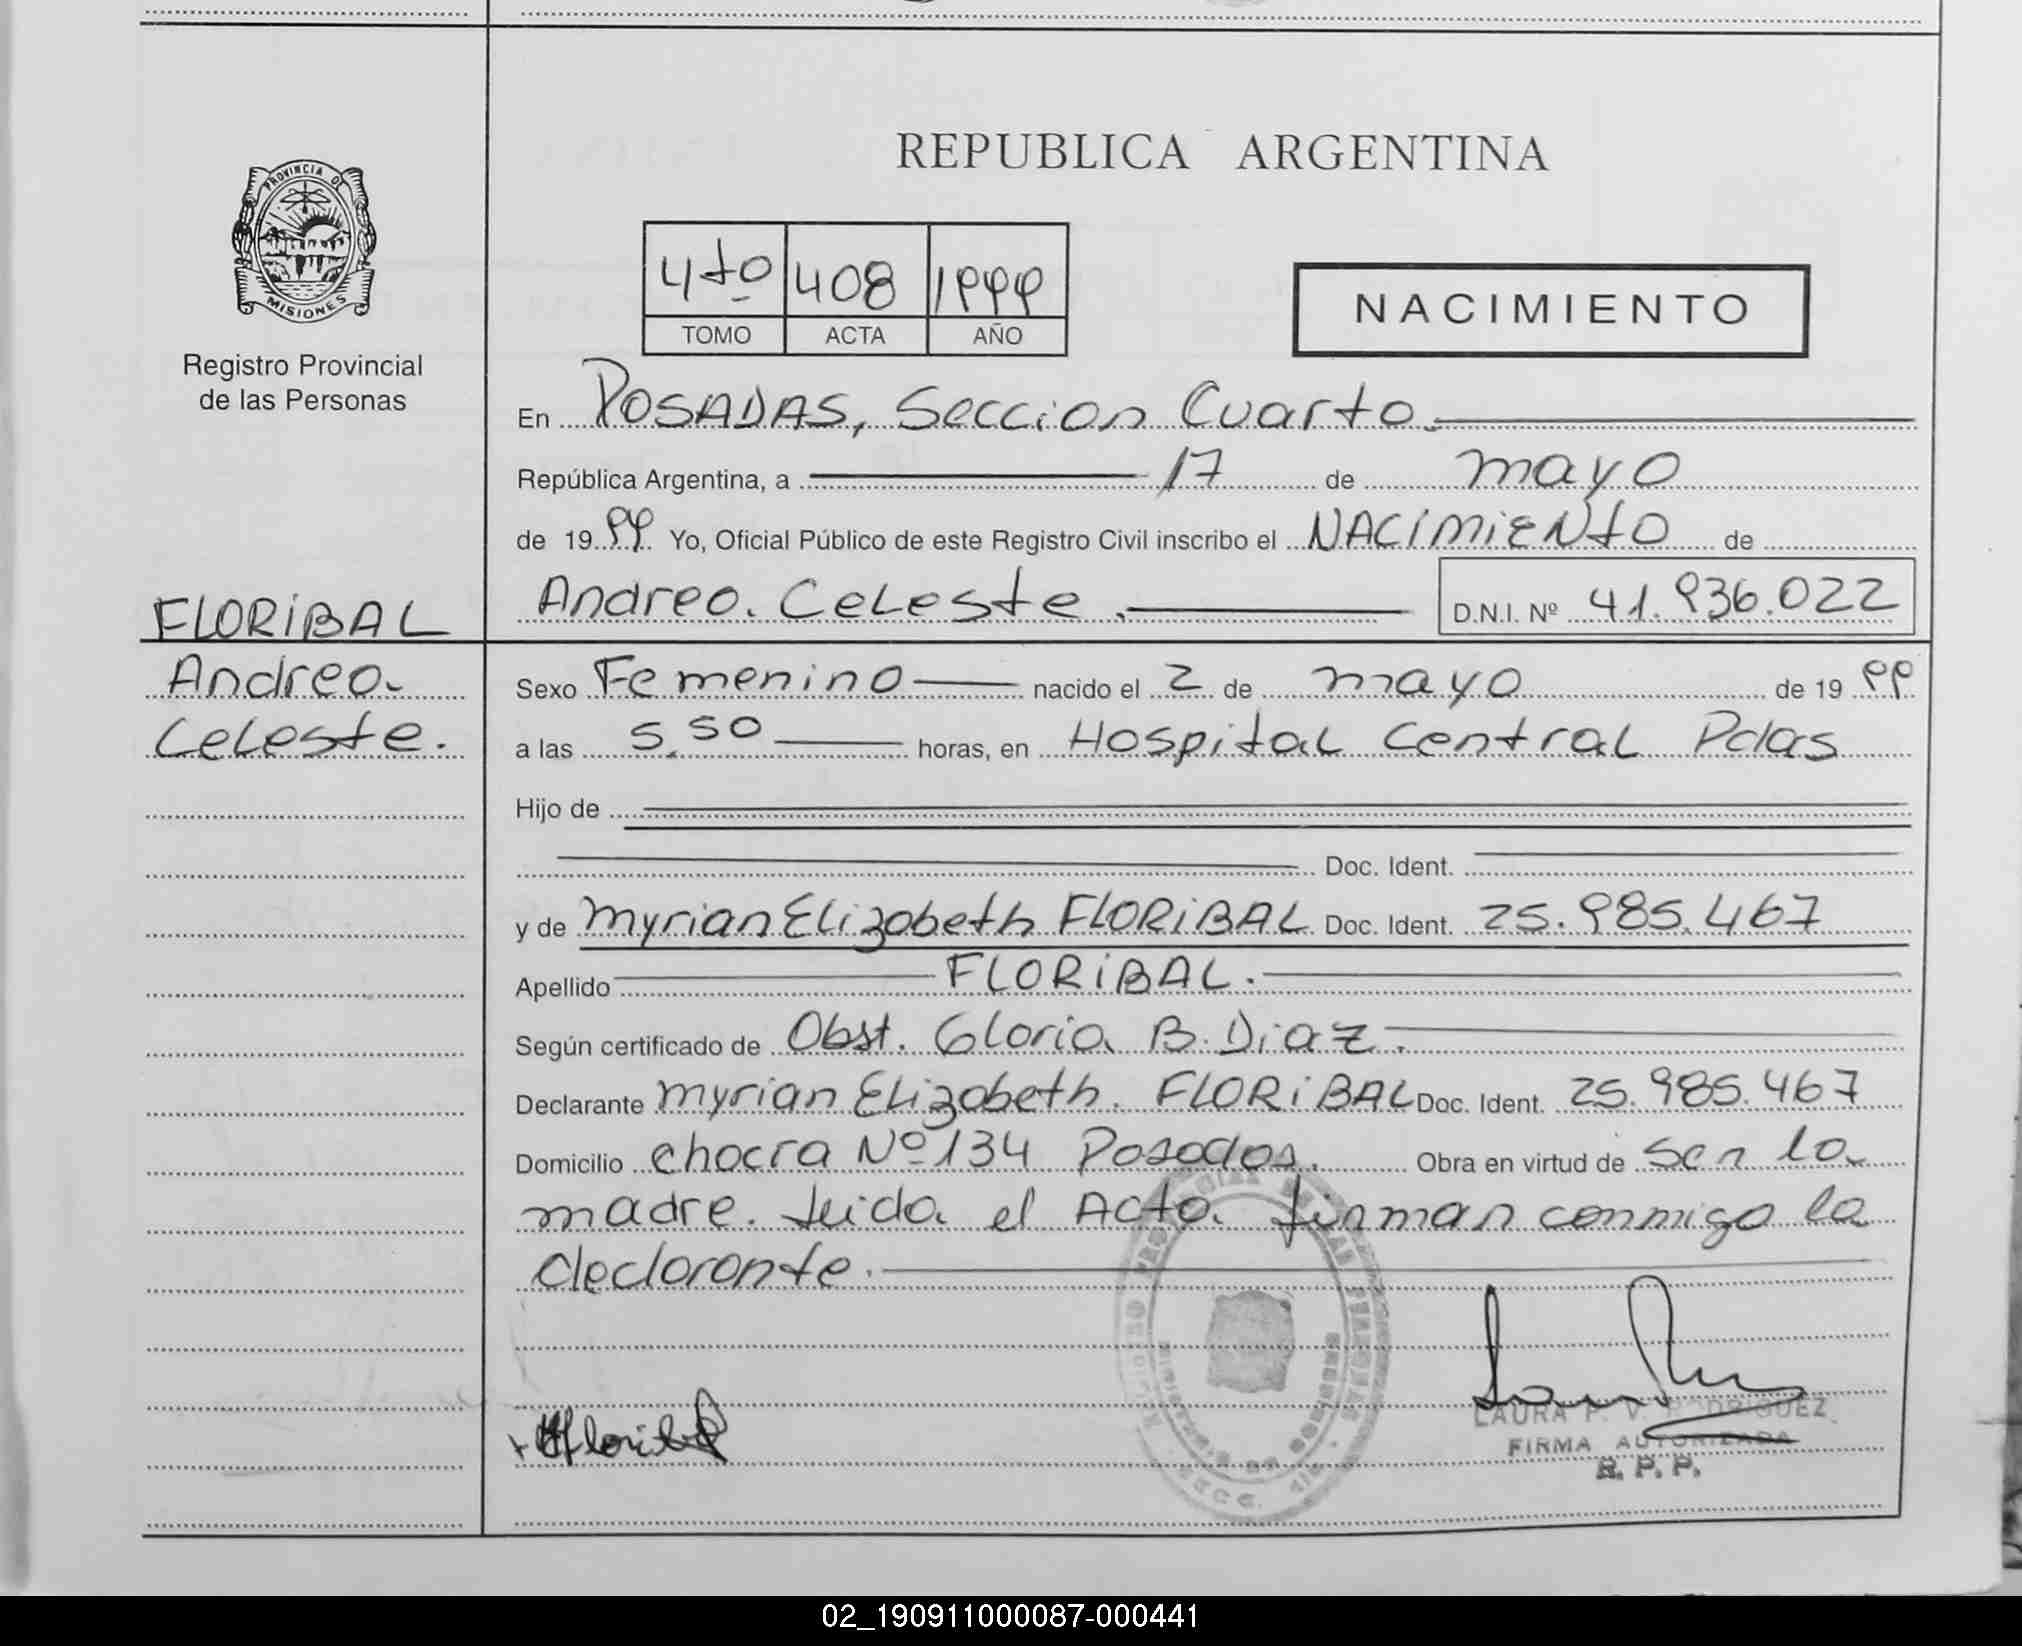 REPUBLICA ARGENTINA
PROVINCIA DE
MISIONES
Registro Provincial
de las Personas
4to 408 1999
TOMO ACTA AÑO
NACIMIENTO
En POSADAS, Seccion Cuarta
República Argentina, a 17 de mayo
de 1999 Yo, Oficial Público de este Registro Civil inscribo el NACIMIENTO de
FLORIBAL
Andrea Celeste. D.N.I. Nº 41.936.022
Andrea
Celeste.
Sexo Femenino nacido el 2 de mayo de 1999
a las 5.50 horas, en Hospital Central Pdas
Hijo de
Doc. Ident.
y de Myrian Elizabeth FLORIBAL Doc. Ident. 25.985.467
Apellido FLORIBAL.
Según certificado de Obst. Gloria B. Diaz.
Declarante Myrian Elizabeth FLORIBAL Doc. Ident. 25.985.467
Domicilio chacra Nº 134 Posadas. Obra en virtud de ser la
madre. Leida el Acta firman conmigo la
declarante.
LAURA P. V. RODRIGUEZ
FIRMA AUTORIZADA
R. P. P.
02_190911000087-000441